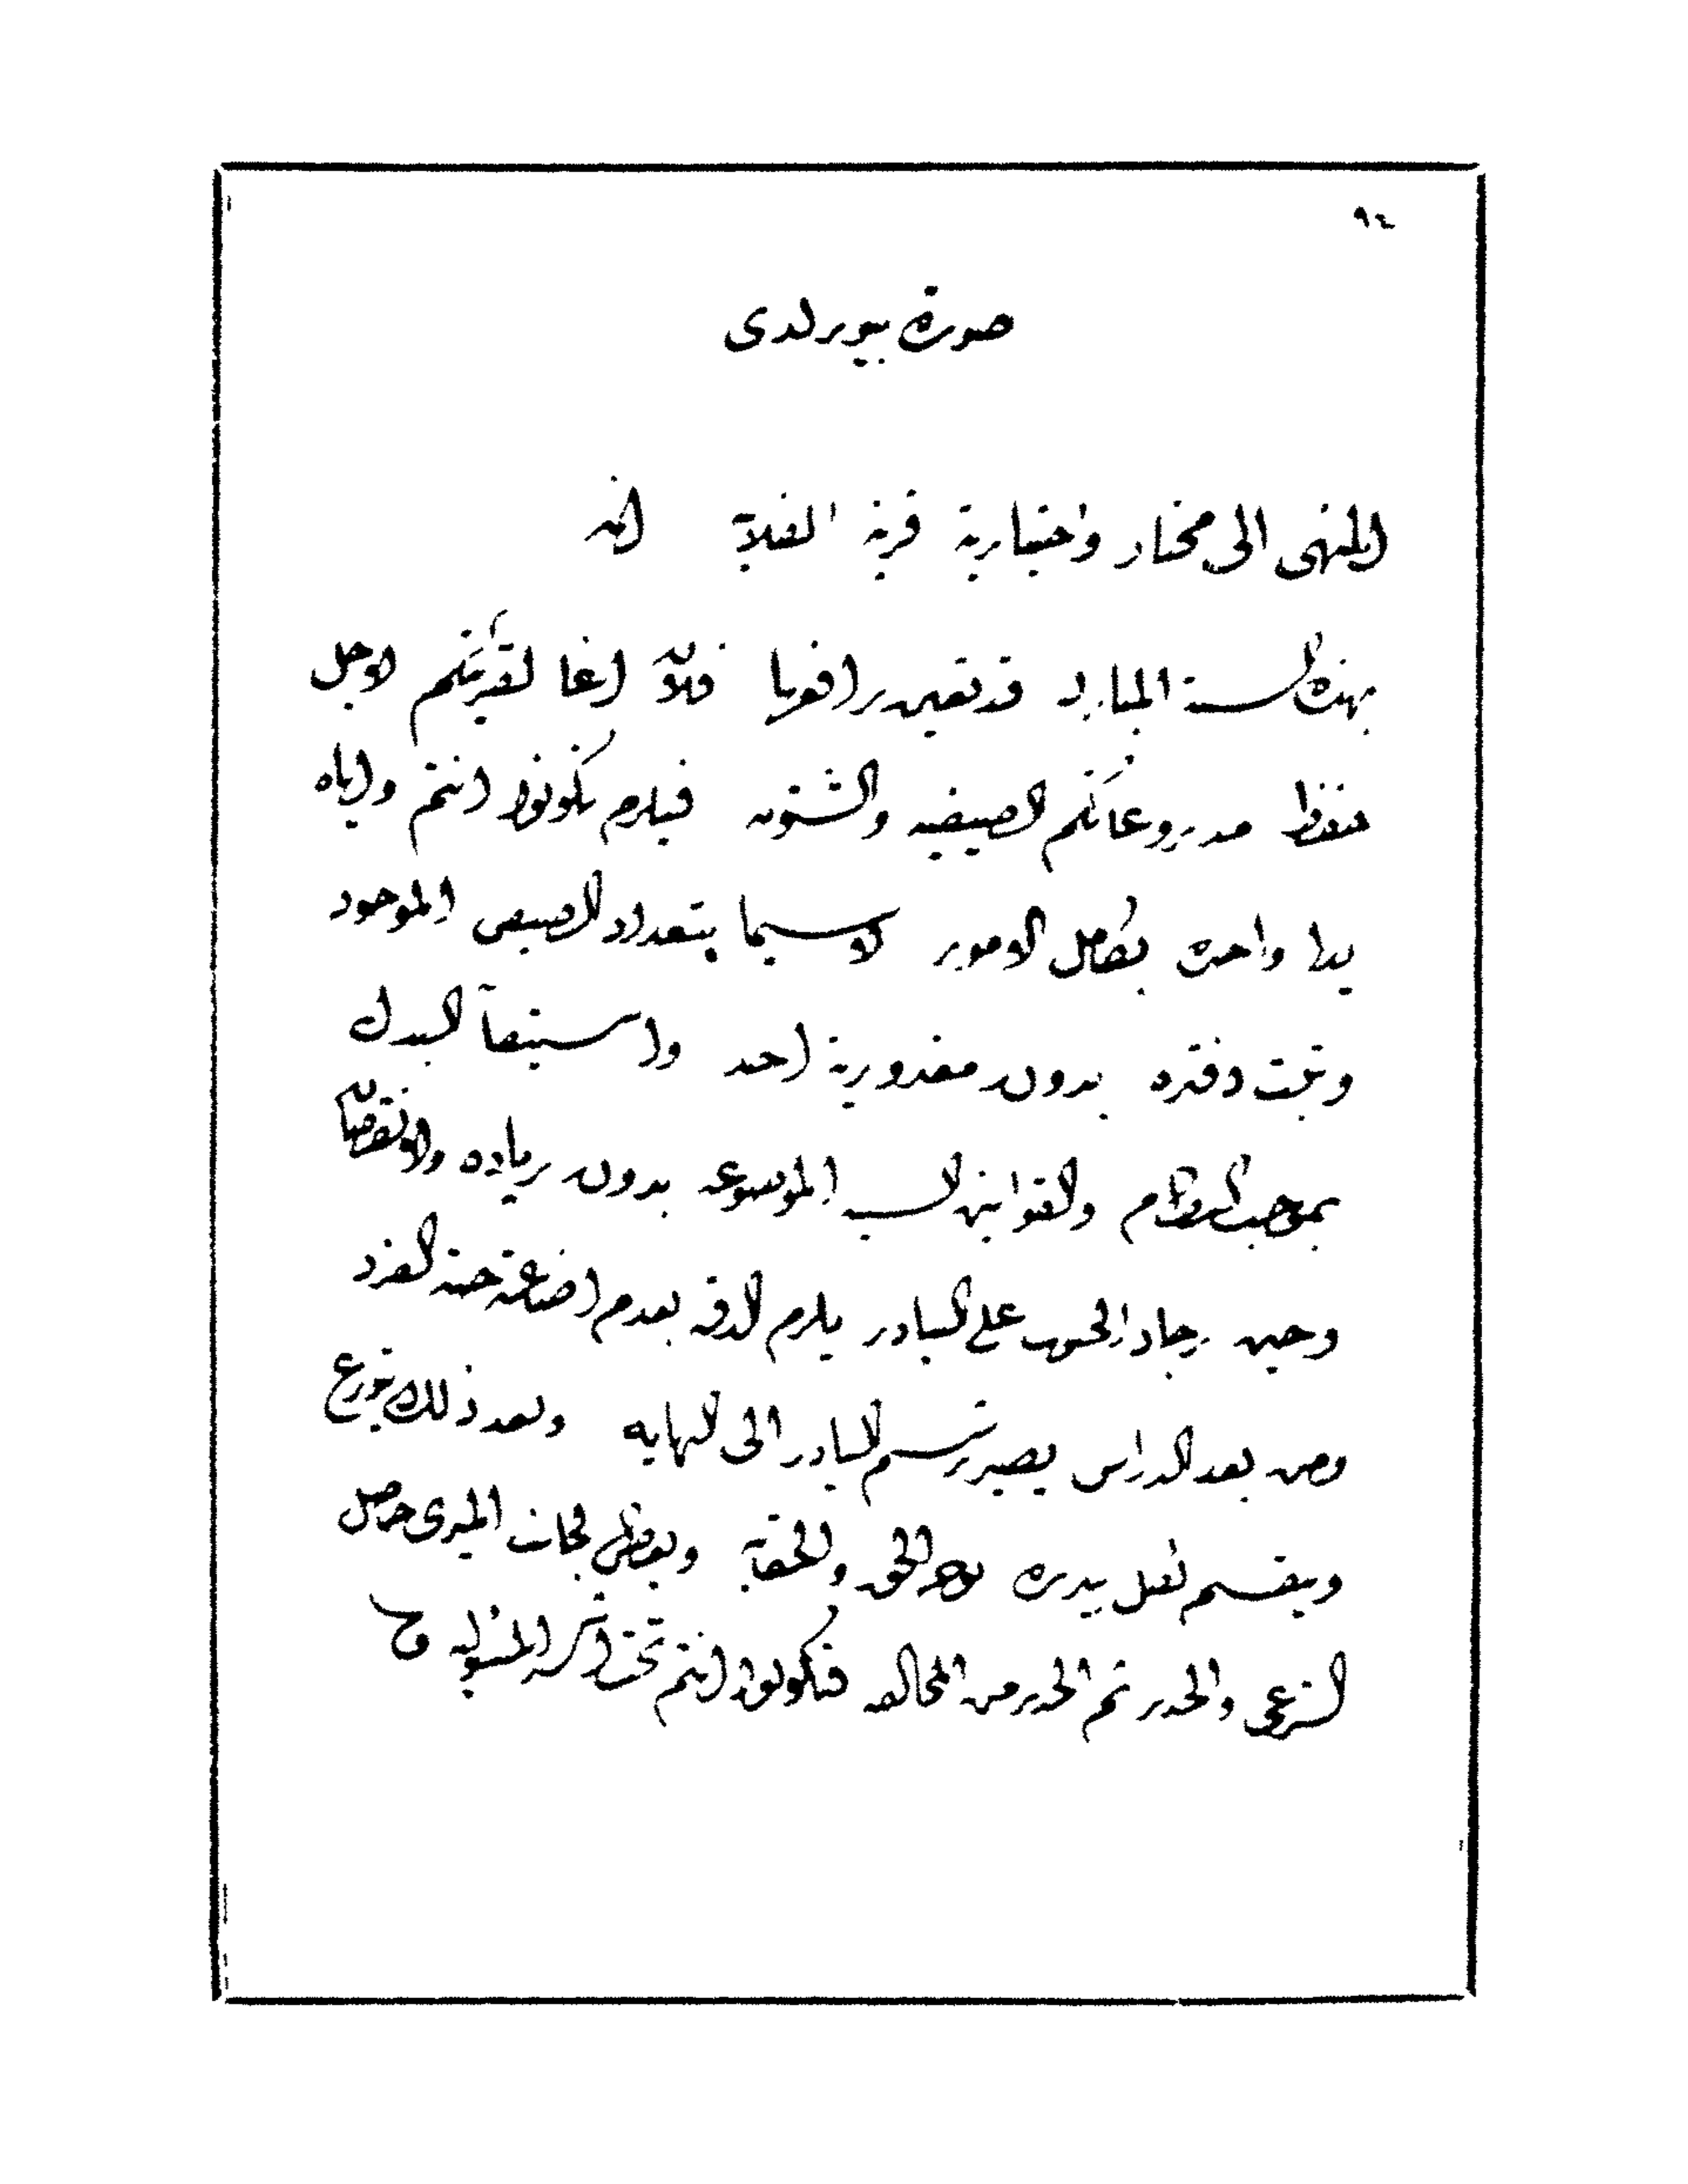 ٩٤
صورة بيورلدى
المنهى الى مختار واختيارية قرية الفلانية انه
بهذه السنة المباركة قد تعين برافعريا فلان اغا لقريتكم لاجل
حفظ مزروعاتكم الصيفيه والشتويه فيلزم تكونوا انتم واياه
يدا واحدة بكامل الامور لا سيما بتعداد الصيفى الموجود
وتحت دفتره بدون مغدورية احد واستيفآ البدل
بموجب النظام والقوانين السنيه الموضوعه بدون زياده ولا نقصان
وحين رجاد الحبوب على البيادر يلزم الدقه بعدم اضاعة حبة الفرد
ومن بعد الدراس يصير ترسيم البيادر الى النهايه وبعد ذلك يتوزع
ويتقسم كل بيدره بوجه الحق والحقانية ويعطى لجانب الميرى حاصل
الشرعى والحذر ثم الحذر من المخالفه فتكونوا انتم تحت اشد المسئوليه